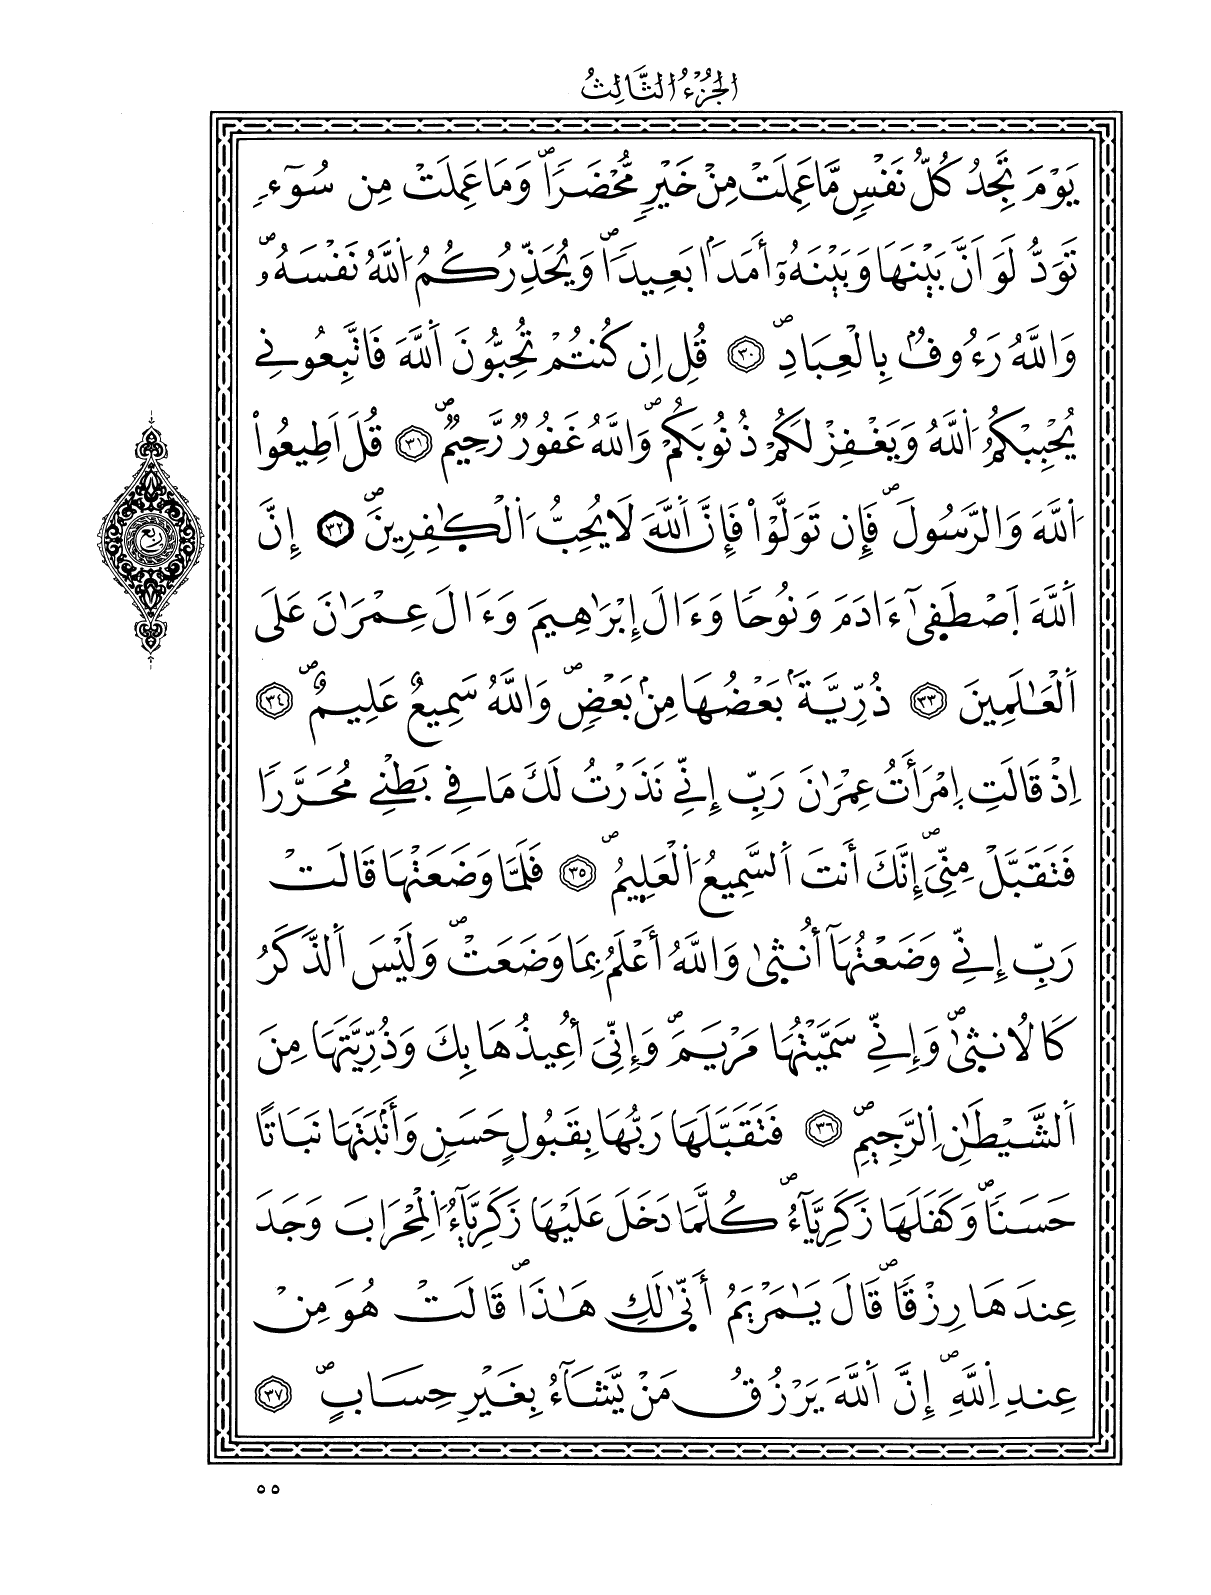 الجُزْءُ الثَّالِثُ
يَوْمَ تَجِدُ كُلُّ نَفْسٖ مَّا عَمِلَتْ مِنْ خَيْرٖ مُّحْضَرًاۖ وَمَا عَمِلَتْ مِن سُوٓءٖ
تَوَدُّ لَوَ اَنَّ بَيْنَهَا وَبَيْنَهُۥٓ أَمَدَۢا بَعِيدًاۖ وَيُحَذِّرُكُمُ اُللَّهُ نَفْسَهُۥۖ
وَاللَّهُ رَءُوفُۢ بِالْعِبَادِۖ ٣٠ قُلِ اِن كُنتُمْ تُحِبُّونَ اَللَّهَ فَاتَّبِعُونِے
يُحْبِبْكُمُ اُللَّهُ وَيَغْفِرْ لَكُمْ ذُنُوبَكُمْۖ وَاللَّهُ غَفُورٞ رَّحِيمٞۖ ٣١ قُلَ اَطِيعُواْ
اُللَّهَ وَالرَّسُولَۖ فَإِن تَوَلَّوْاْ فَإِنَّ اَللَّهَ لَا يُحِبُّ اُلْكَٰفِرِينَۖ ٣٢ إِنَّ
اَللَّهَ اَصْطَفَىٰٓ ءَادَمَ وَنُوحًا وَءَالَ إِبْرَٰهِيمَ وَءَالَ عِمْرَٰنَ عَلَى
اَلْعَٰلَمِينَ ٣٣ ذُرِّيَّةَۢ بَعْضُهَا مِنۢ بَعْضٖۖ وَاللَّهُ سَمِيعٌ عَلِيمٌۖ ٣٤
اِذْ قَالَتِ اِمْرَأَتُ عِمْرَٰنَ رَبِّ إِنِّے نَذَرْتُ لَكَ مَا فِے بَطْنِے مُحَرَّرٗا
فَتَقَبَّلْ مِنِّيَۖ إِنَّكَ أَنتَ اَلسَّمِيعُ اُلْعَلِيمُۖ ٣٥ فَلَمَّا وَضَعَتْهَا قَالَتْ
رَبِّ إِنِّے وَضَعْتُهَآ أُنثَىٰ وَاللَّهُ أَعْلَمُ بِمَا وَضَعَتْۖ وَلَيْسَ اَلذَّكَرُ
كَالُانثَىٰۖ وَإِنِّے سَمَّيْتُهَا مَرْيَمَۖ وَإِنِّيَ أُعِيذُهَا بِكَ وَذُرِّيَّتَهَا مِنَ
اَلشَّيْطَٰنِ اِلرَّجِيمِۖ ٣٦ فَتَقَبَّلَهَا رَبُّهَا بِقَبُولٍ حَسَنٖ وَأَنۢبَتَهَا نَبَاتًا
حَسَنٗاۖ وَكَفَلَهَا زَكَرِيَّآءُۖ كُلَّمَا دَخَلَ عَلَيْهَا زَكَرِيَّآءُ اُلْمِحْرَابَ وَجَدَ
عِندَهَا رِزْقٗاۖ قَالَ يَٰمَرْيَمُ أَنَّىٰ لَكِ هَٰذَاۖ قَالَتْ هُوَ مِنْ
عِندِ اِللَّهِۖ إِنَّ اَللَّهَ يَرْزُقُ مَنْ يَّشَآءُ بِغَيْرِ حِسَابٍۖ ٣٧
ربع
٥٥